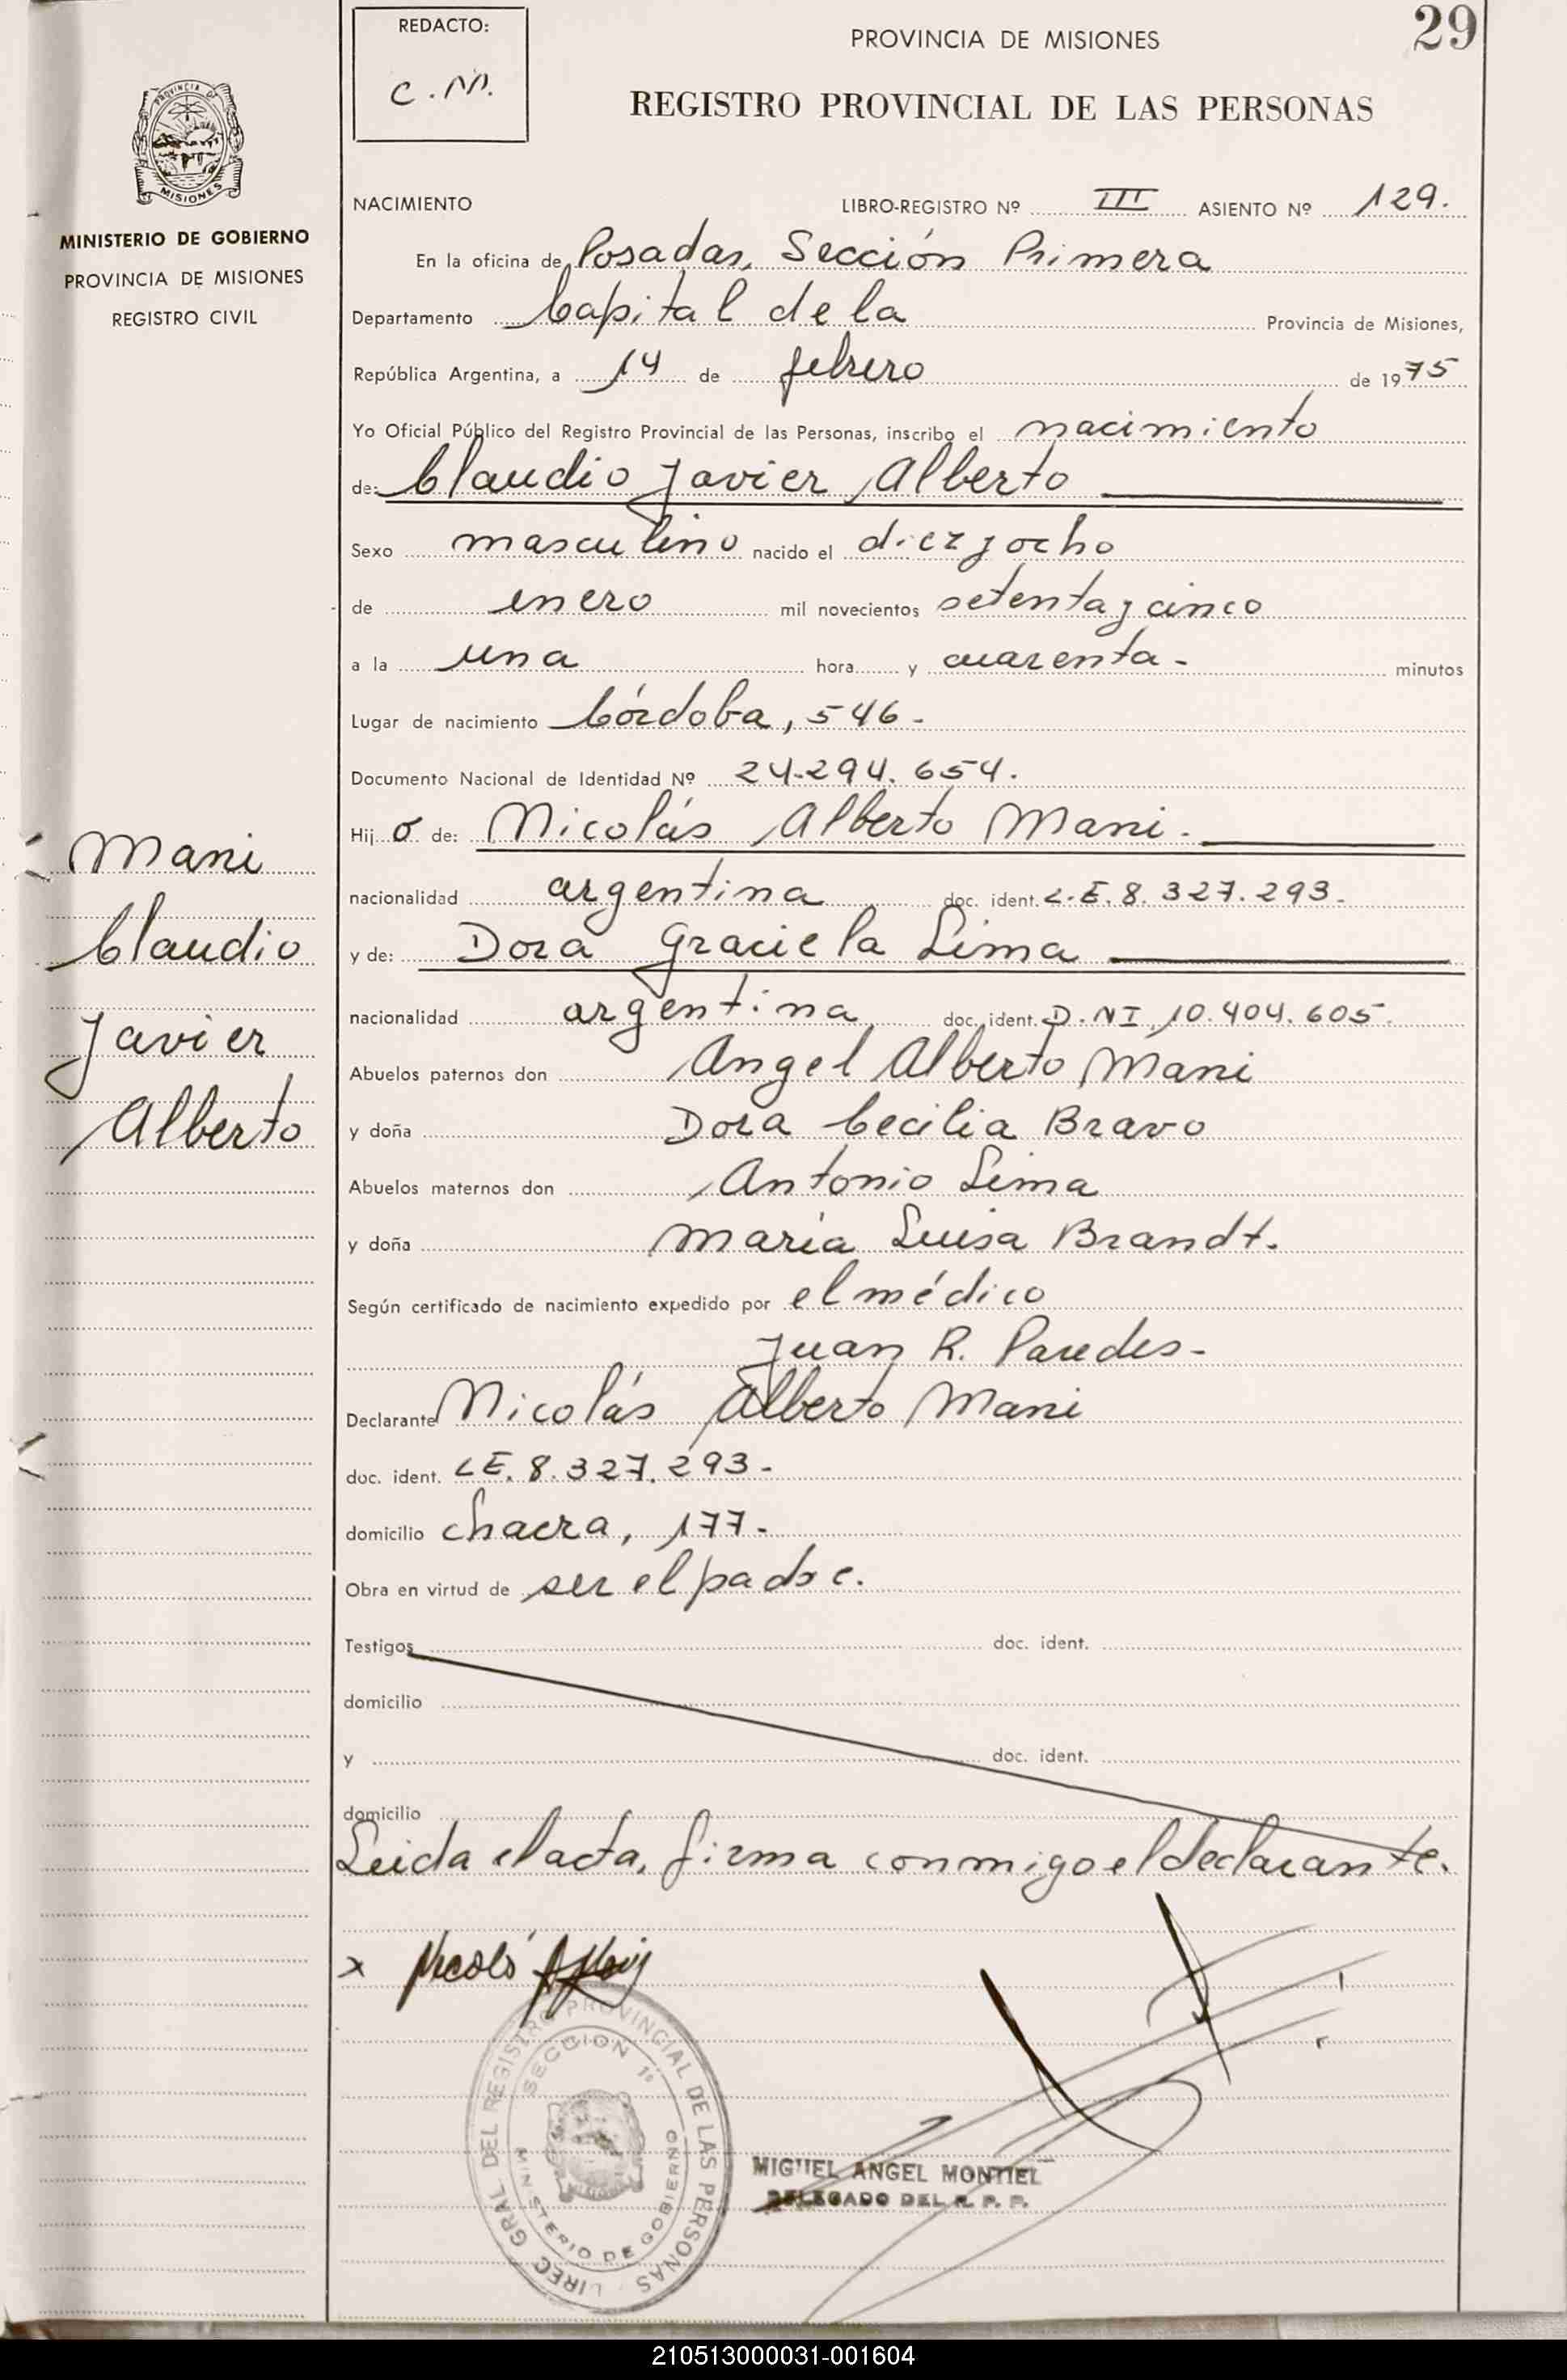 29
REDACTO:
C.M.
PROVINCIA DE MISIONES
REGISTRO PROVINCIAL DE LAS PERSONAS
PROVINCIA DE
MISIONES
MINISTERIO DE GOBIERNO
PROVINCIA DE MISIONES
REGISTRO CIVIL
Mani
Claudio
Javier
Alberto
NACIMIENTO LIBRO-REGISTRO Nº III ASIENTO Nº 129.
En la oficina de Posadas, Sección Primera
Departamento Capital de la Provincia de Misiones,
República Argentina, a 14 de febrero de 1975
Yo Oficial Público del Registro Provincial de las Personas, inscribo el nacimiento
de: Claudio Javier Alberto
Sexo masculino nacido el diez y ocho
de enero mil novecientos setenta y cinco
a la una hora y cuarenta- minutos
Lugar de nacimiento Córdoba, 546-
Documento Nacional de Identidad Nº 24.294.654.
Hijo de: Nicolás Alberto Mani.
nacionalidad argentina doc. ident. L.E. 8.327.293-
y de: Dora Graciela Lima
nacionalidad argentina doc. ident. D.NI 10.404.605.
Abuelos paternos don Angel Alberto Mani
y doña Dora Cecilia Bravo
Abuelos maternos don Antonio Lima
y doña María Luisa Brandt.
Según certificado de nacimiento expedido por el médico
Juan R. Paredes-
Declarante Nicolás Alberto Mani
doc. ident. LE. 8.327.293-
domicilio chacra, 177-
Obra en virtud de ser el padre.
Testigos doc. ident.
domicilio
y doc. ident.
domicilio
Leida el acta, firma conmigo el declarante.
x
DIREC. GRAL. DEL REGISTRO PROVINCIAL DE LAS PERSONAS
SECCION 1º
MINISTERIO DE GOBIERNO
MIGUEL ANGEL MONTIEL
DELEGADO DEL R. P. P.
210513000031-001604